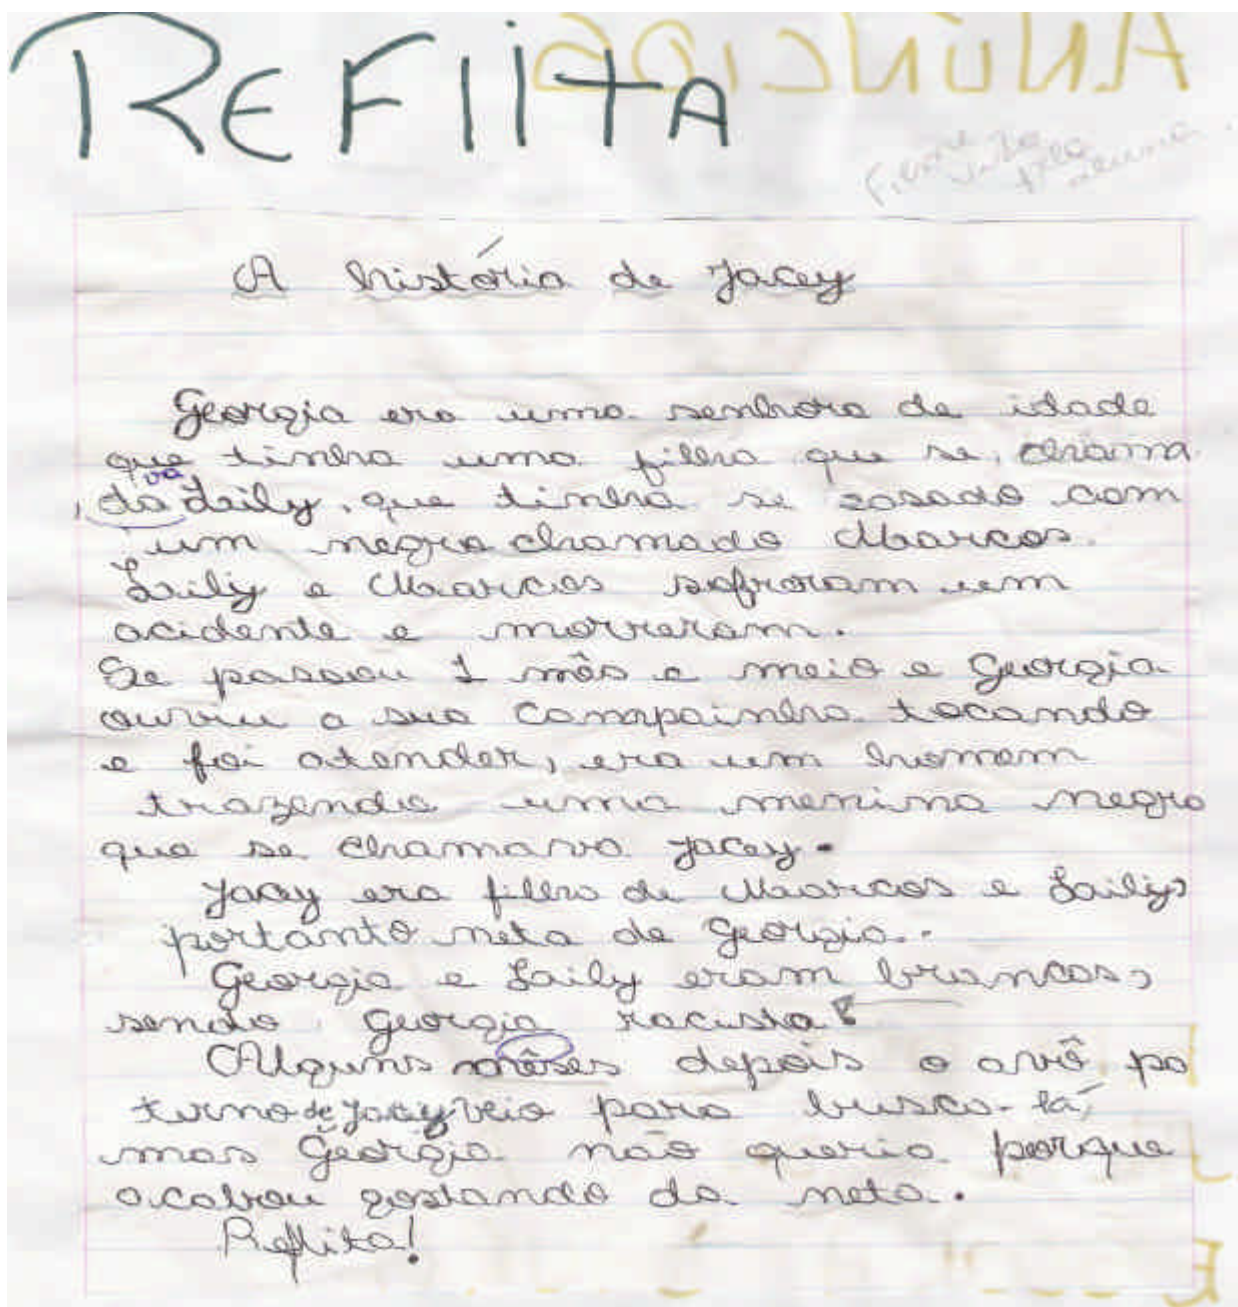 REFlitA
Anúncios
A história de Jacey
Georgia era uma senhora de idade
que tinha uma filha que se chama
va
da Laily, que tinha se casado com
um negro chamado Marcos.
Laily e Marcos sofreram um
acidente e morreram.
Se passou 1 mês e meio e Georgia
ouviu a sua campainha tocando
e foi atender, era um homem
trazendo uma menina negra
que se chamava Jacey.
Jacey era filha de Marcos e Laily,
portanto neta de Georgia.
Georgia e Laily eram brancas,
sendo Georgia racista
Alguns mêses depois o avô pa
terno de Jacey veio para busca-lá,
mas Georgia não queria porque
acabou gostando da neta.
Reflita!